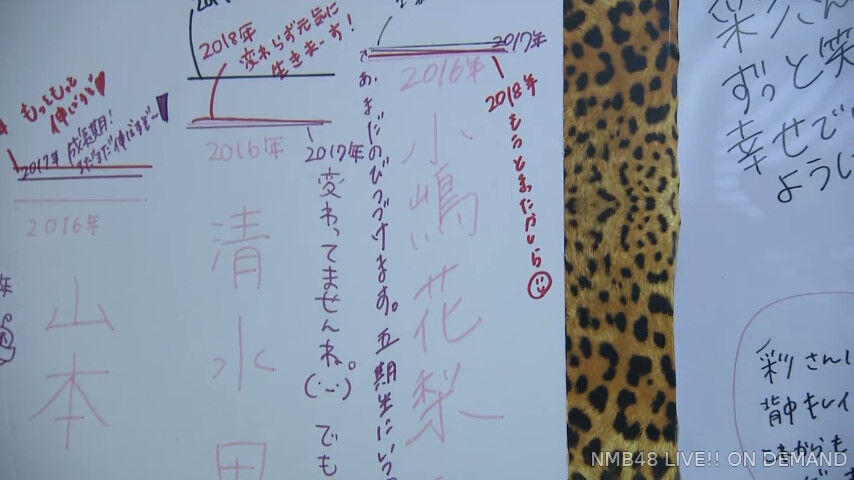 もっともっと
伸びるぞ
2017年 成長期!
まだまだ伸びるぞ〜
2016年
山本
2018年
変わらず元気に
生きまーす!
2016年
清水
2017年
変わってませんね。
でも
2017年
2016年
小嶋花梨
2018年 もうとまったかしら
まだのびつづけます。五期生にいつ
ずっと笑
幸せで
ように
彩さんに
背中もレイ
NMB48 LIVE!! ON DEMAND